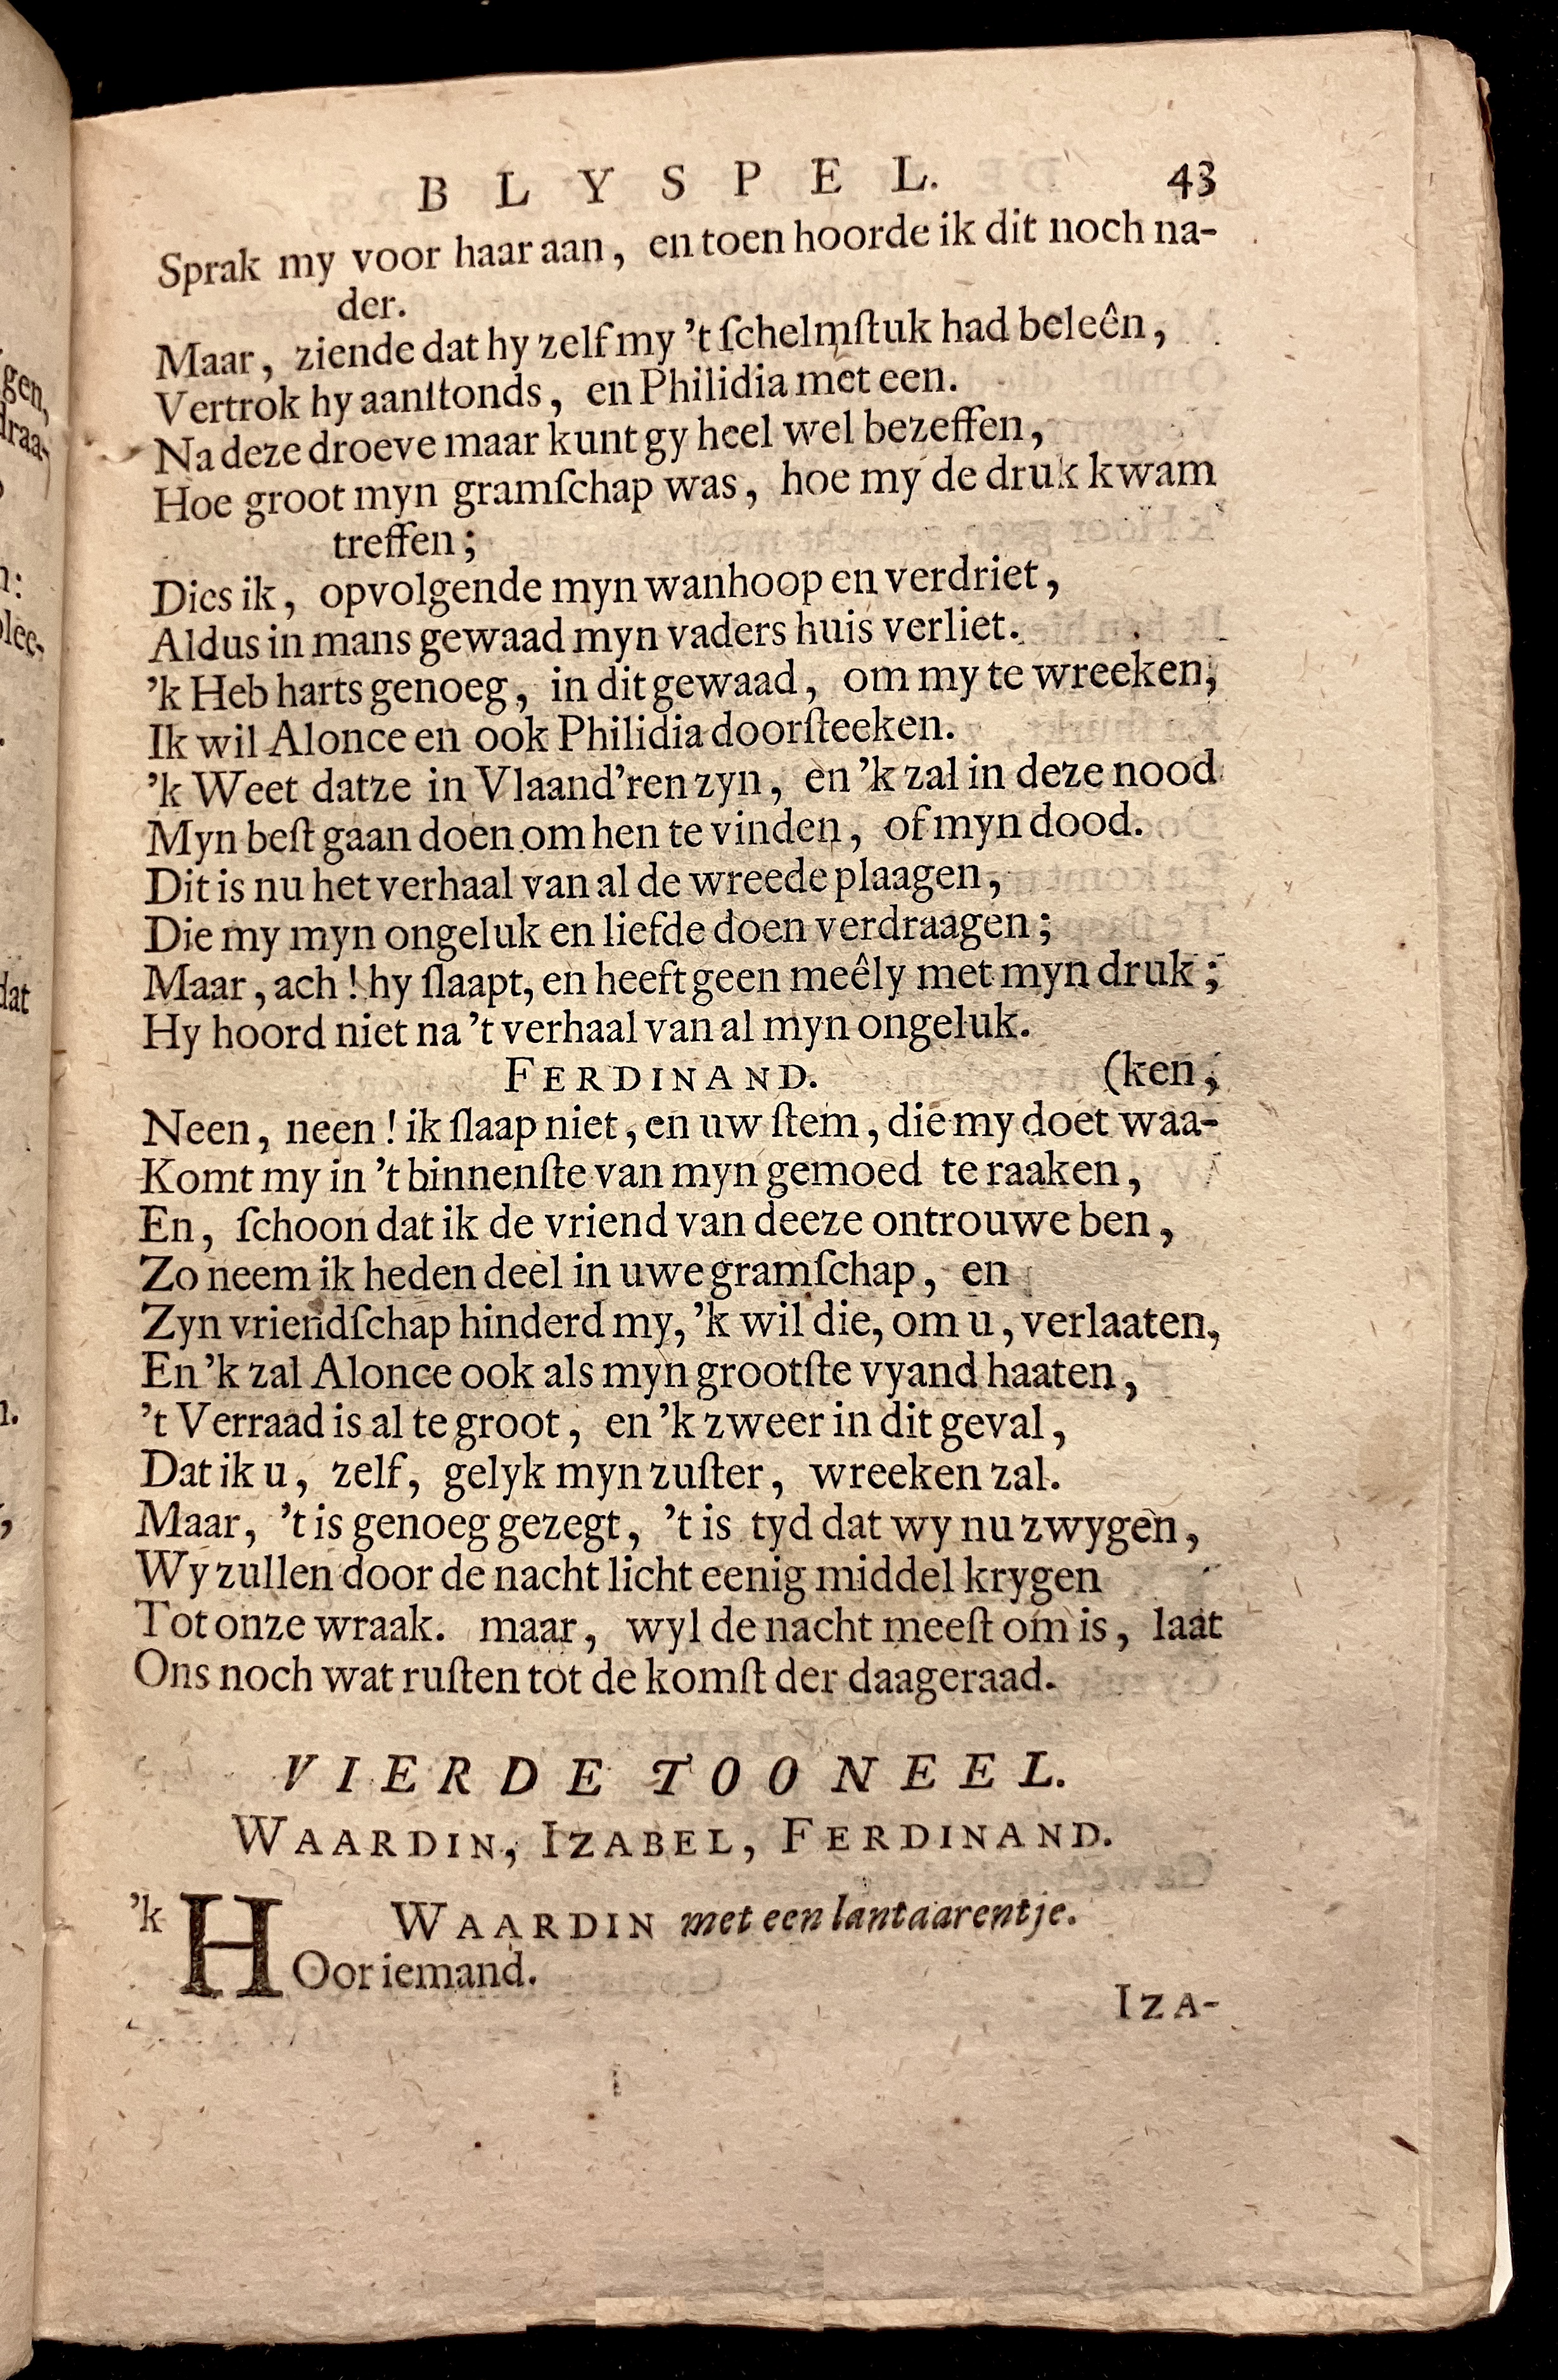 BLYSPEL. 43
Sprak my voor haar aan, en toen hoorde ik dit noch na-
der.
Maar, ziende dat hy zelf my 't ſchelmſtuk had beleên,
Vertrok hy aanſtonds, en Philidia met een.
Na deze droeve maar kunt gy heel wel bezeffen,
Hoe groot myn gramſchap was, hoe my de druk kwam
treffen;
Dies ik, opvolgende myn wanhoop en verdriet,
Aldus in mans gewaad myn vaders huis verliet.
'k Heb harts genoeg, in dit gewaad, om my te wreeken,
Ik wil Alonce en ook Philidia doorſteeken.
'k Weet datze in Vlaand'ren zyn, en 'k zal in deze nood
Myn beſt gaan doen om hen te vinden, of myn dood.
Dit is nu het verhaal van al de wreede plaagen,
Die my myn ongeluk en liefde doen verdraagen;
Maar, ach! hy ſlaapt, en heeft geen meêly met myn druk;
Hy hoord niet na 't verhaal van al myn ongeluk.
FERDINAND. (ken,
Neen, neen! ik ſlaap niet, en uw ſtem, die my doet waa-
Komt my in 't binnenſte van myn gemoed te raaken,
En, ſchoon dat ik de vriend van deeze ontrouwe ben,
Zo neem ik heden deel in uwe gramſchap, en
Zyn vriendſchap hinderd my, 'k wil die, om u, verlaaten,
En 'k zal Alonce ook als myn grootſte vyand haaten,
't Verraad is al te groot, en 'k zweer in dit geval,
Dat ik u, zelf, gelyk myn zuſter, wreeken zal.
Maar, 't is genoeg gezegt, 't is tyd dat wy nu zwygen,
Wy zullen door de nacht licht eenig middel krygen
Tot onze wraak. maar, wyl de nacht meeſt om is, laat
Ons noch wat ruſten tot de komſt der daageraad.
VIERDE TOONEEL.
WAARDIN, IZABEL, FERDINAND.
WAARDIN met een lantaarentje.
'k HOor iemand.
IZA-